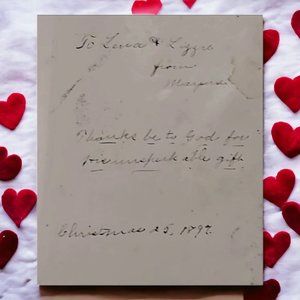 To Lena & Lizzie
from
Thanks be to God for
his unspeak able gift
Christmas 25, 1897